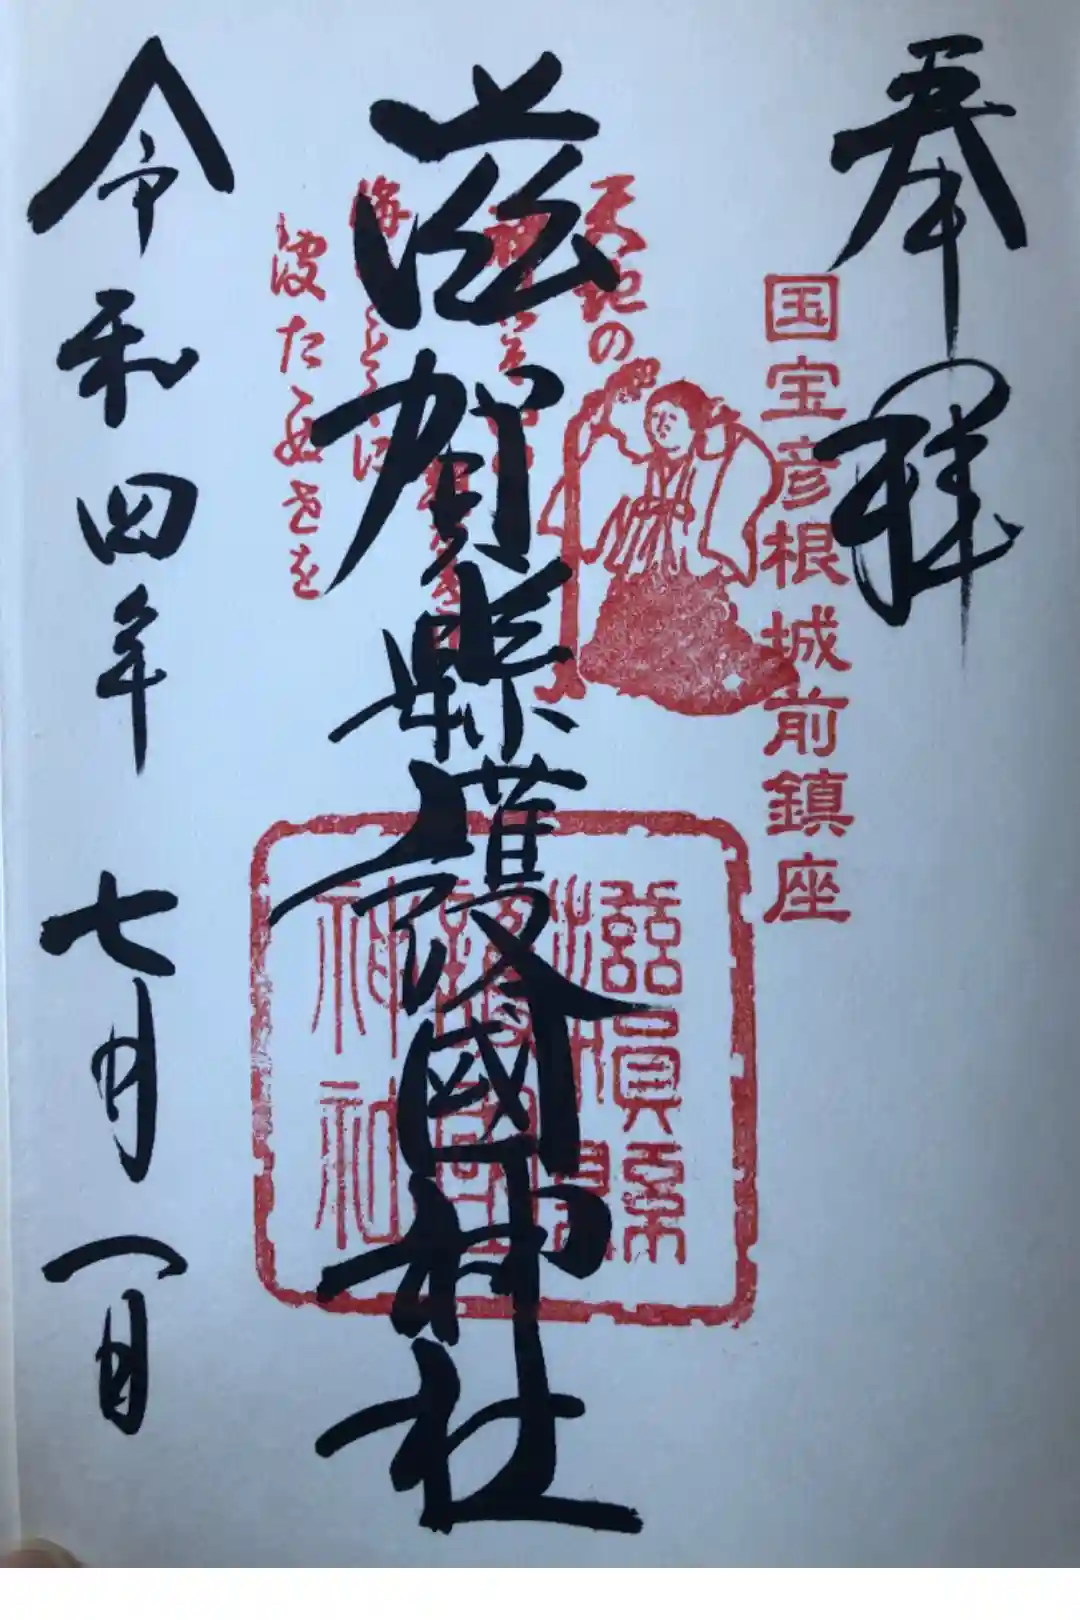 奉拝
国宝彦根城前鎮座
天地の
海
波たゝぬ世を
滋賀縣護國神社
滋賀縣
護國
神社
令和四年七月一日